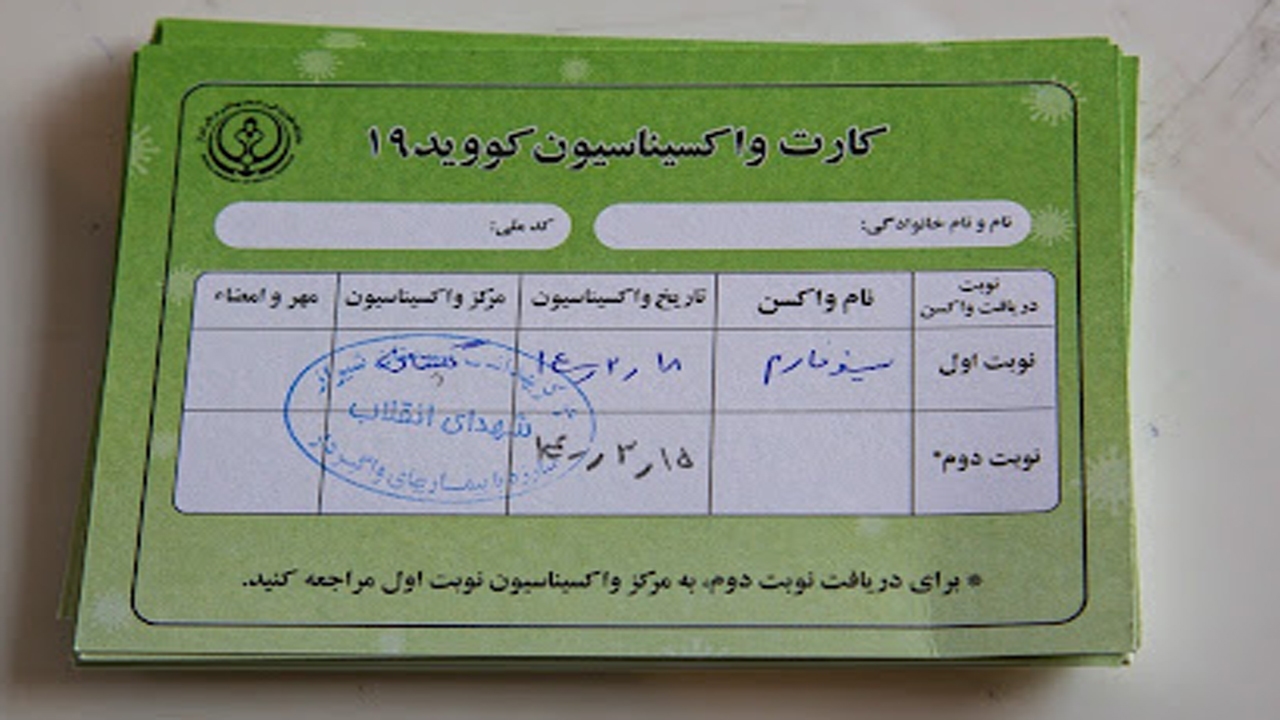 کارت واکسیناسیون کووید۱۹
نام و نام خانوادگی: کد ملی:
نوبت دریافت واکسن نام واکسن تاریخ واکسیناسیون مرکز واکسیناسیون مهر و امضاء
نوبت اول سینوفارم ۱۴۰۰٫۲٫۱۸
شهدای انقلاب
نوبت دوم* ۱۴۰۰٫۳٫۱۵
مبارزه با بیماریهای واگیردار
* برای دریافت نوبت دوم، به مرکز واکسیناسیون نوبت اول مراجعه کنید.